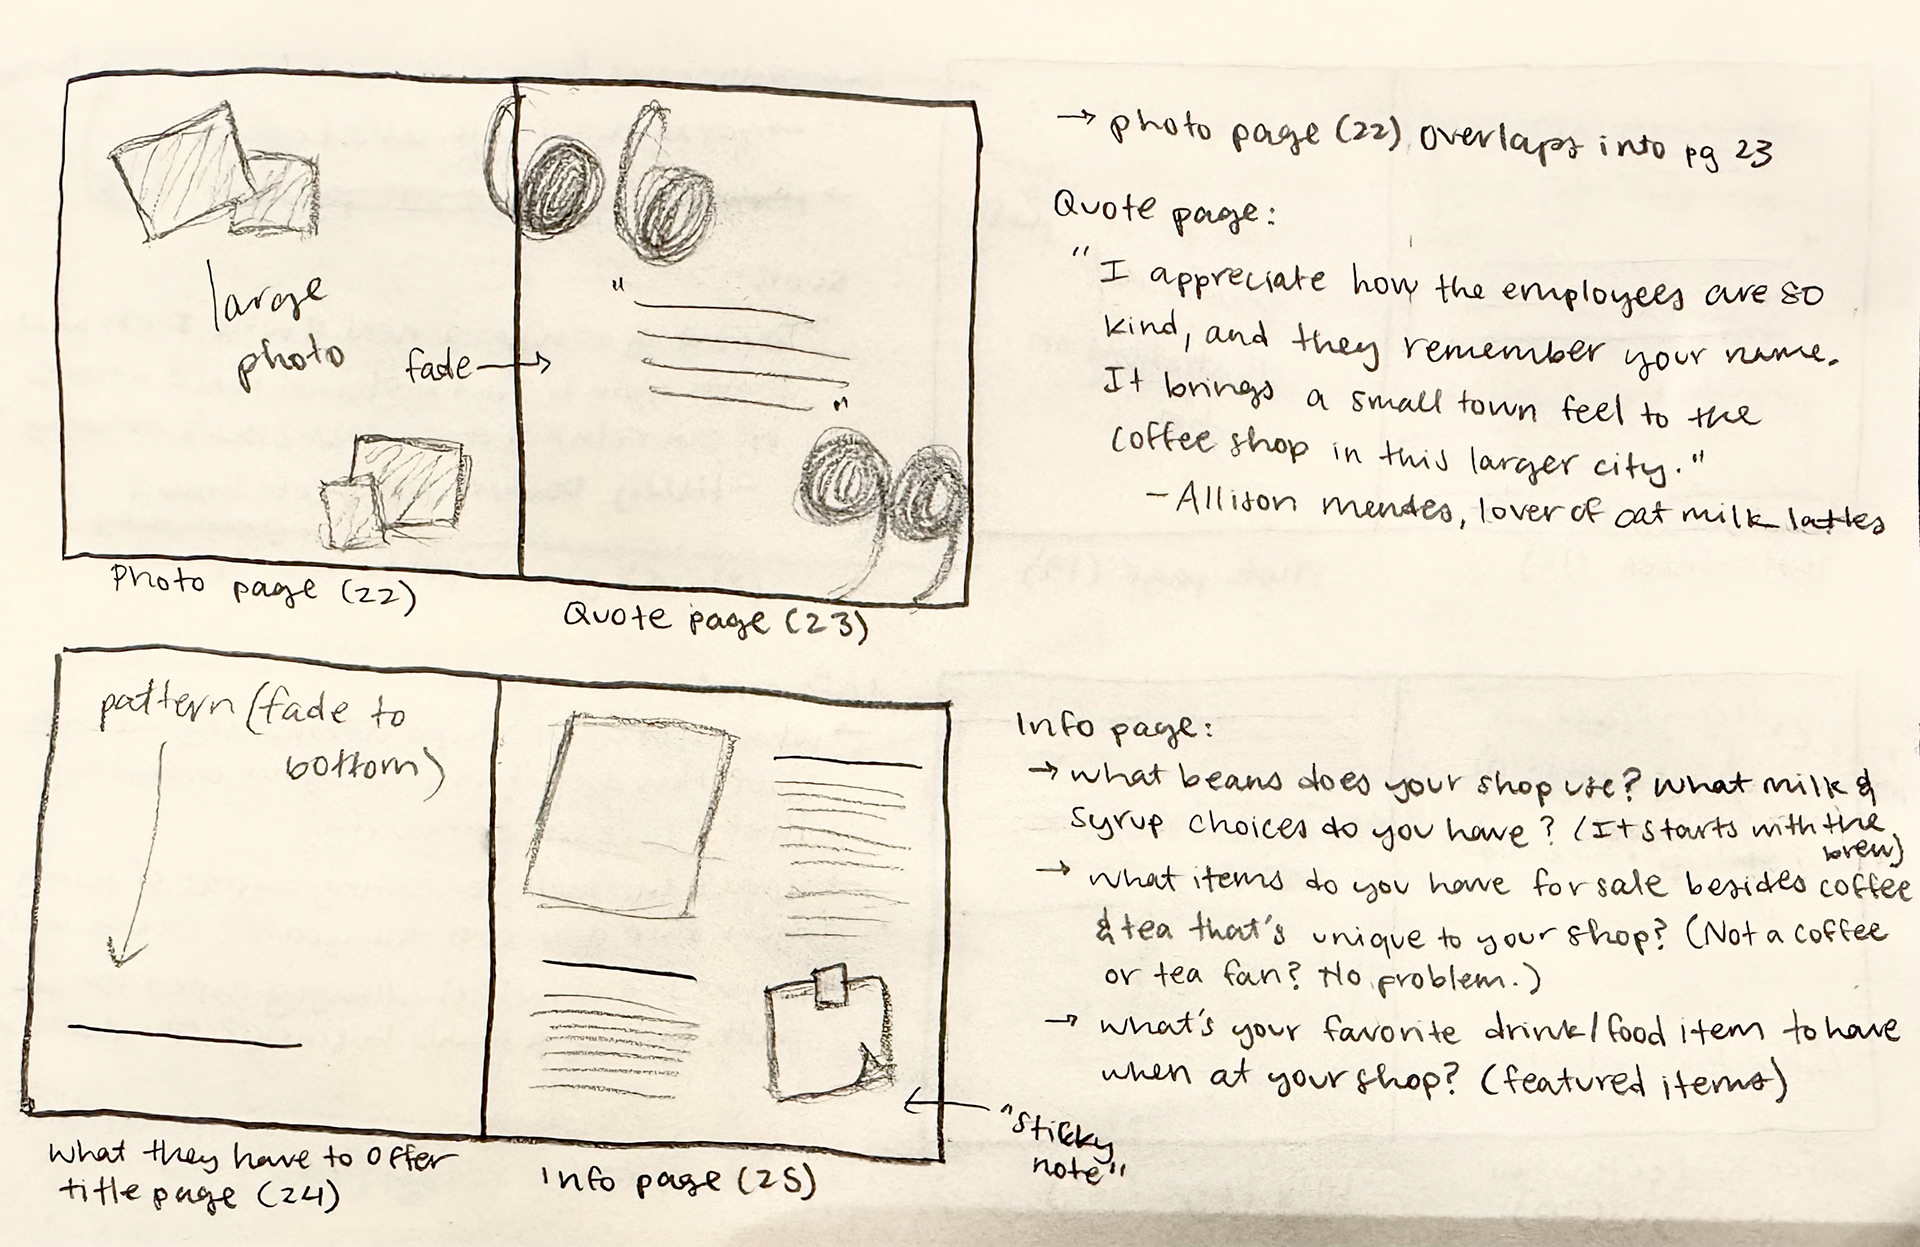 large
photo
fade →
"
"
Photo page (22)
Quote page (23)
→ photo page (22) overlaps into pg 23
Quote page:
"I appreciate how the employees are so
kind, and they remember your name.
It brings a small town feel to the
coffee shop in this larger city."
- Allison mendes, lover of oat milk lattes
pattern (fade to
bottom)
What they have to offer
title page (24)
Info page (25)
"Sticky
note"
Info page:
→ what beans does your shop use? What milk &
syrup choices do you have? (It starts with the
brew)
→ what items do you have for sale besides coffee
& tea that's unique to your shop? (Not a coffee
or tea fan? No problem.)
→ what's your favorite drink/food item to have
when at your shop? (featured items)